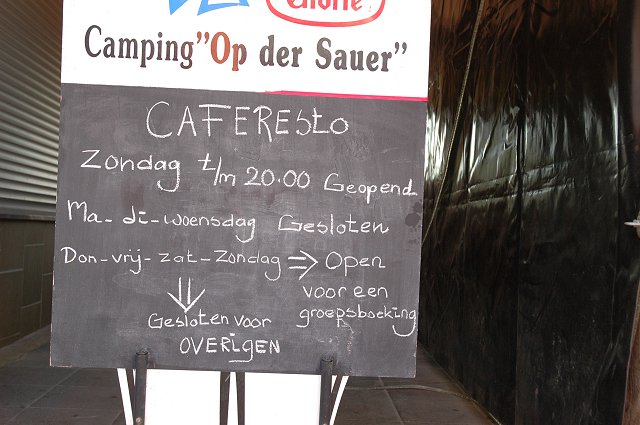 Camping "Op der Sauer"
CAFERESto
Zondag t/m 20.00 Geopend
Ma-di-woensdag Gesloten
Don-vrij-zat-zondag ⇒ Open
voor een
groepsboeking
Gesloten voor
OVERIGEN